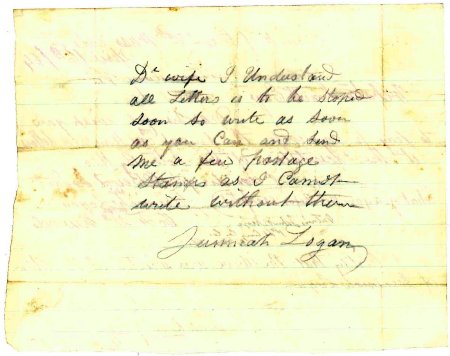 Dr wife I Understand
all Letters is to be stoped
soon so write as soon
as you Can and send
me a few postage
stamps as I Cannot
write without them
Jermiah Logan